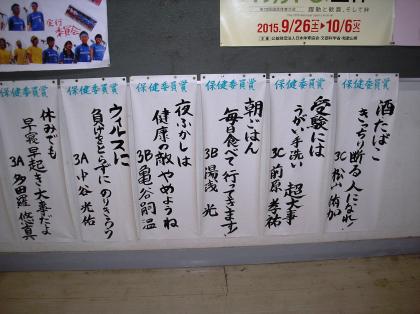 2015.9/26㊏→10/6㊋
保健委員賞
酒たばこ
きっちり断る人になれ!
3C 松山侑加
保健委員賞
受験には
うがい手洗い 超大事
3C 前原孝祐
保健委員賞
朝ごはん
毎日食べて行ってきます!
3B 湯浅 光
保健委員賞
夜ふかしは
健康の敵 やめようね
3B 亀谷嗣温
保健委員賞
ウィルスに
負けをとらずにのりきろう
3A 中谷光佑
保健委員賞
休みでも
早寝早起き大事だよ
3A 多田羅悠真